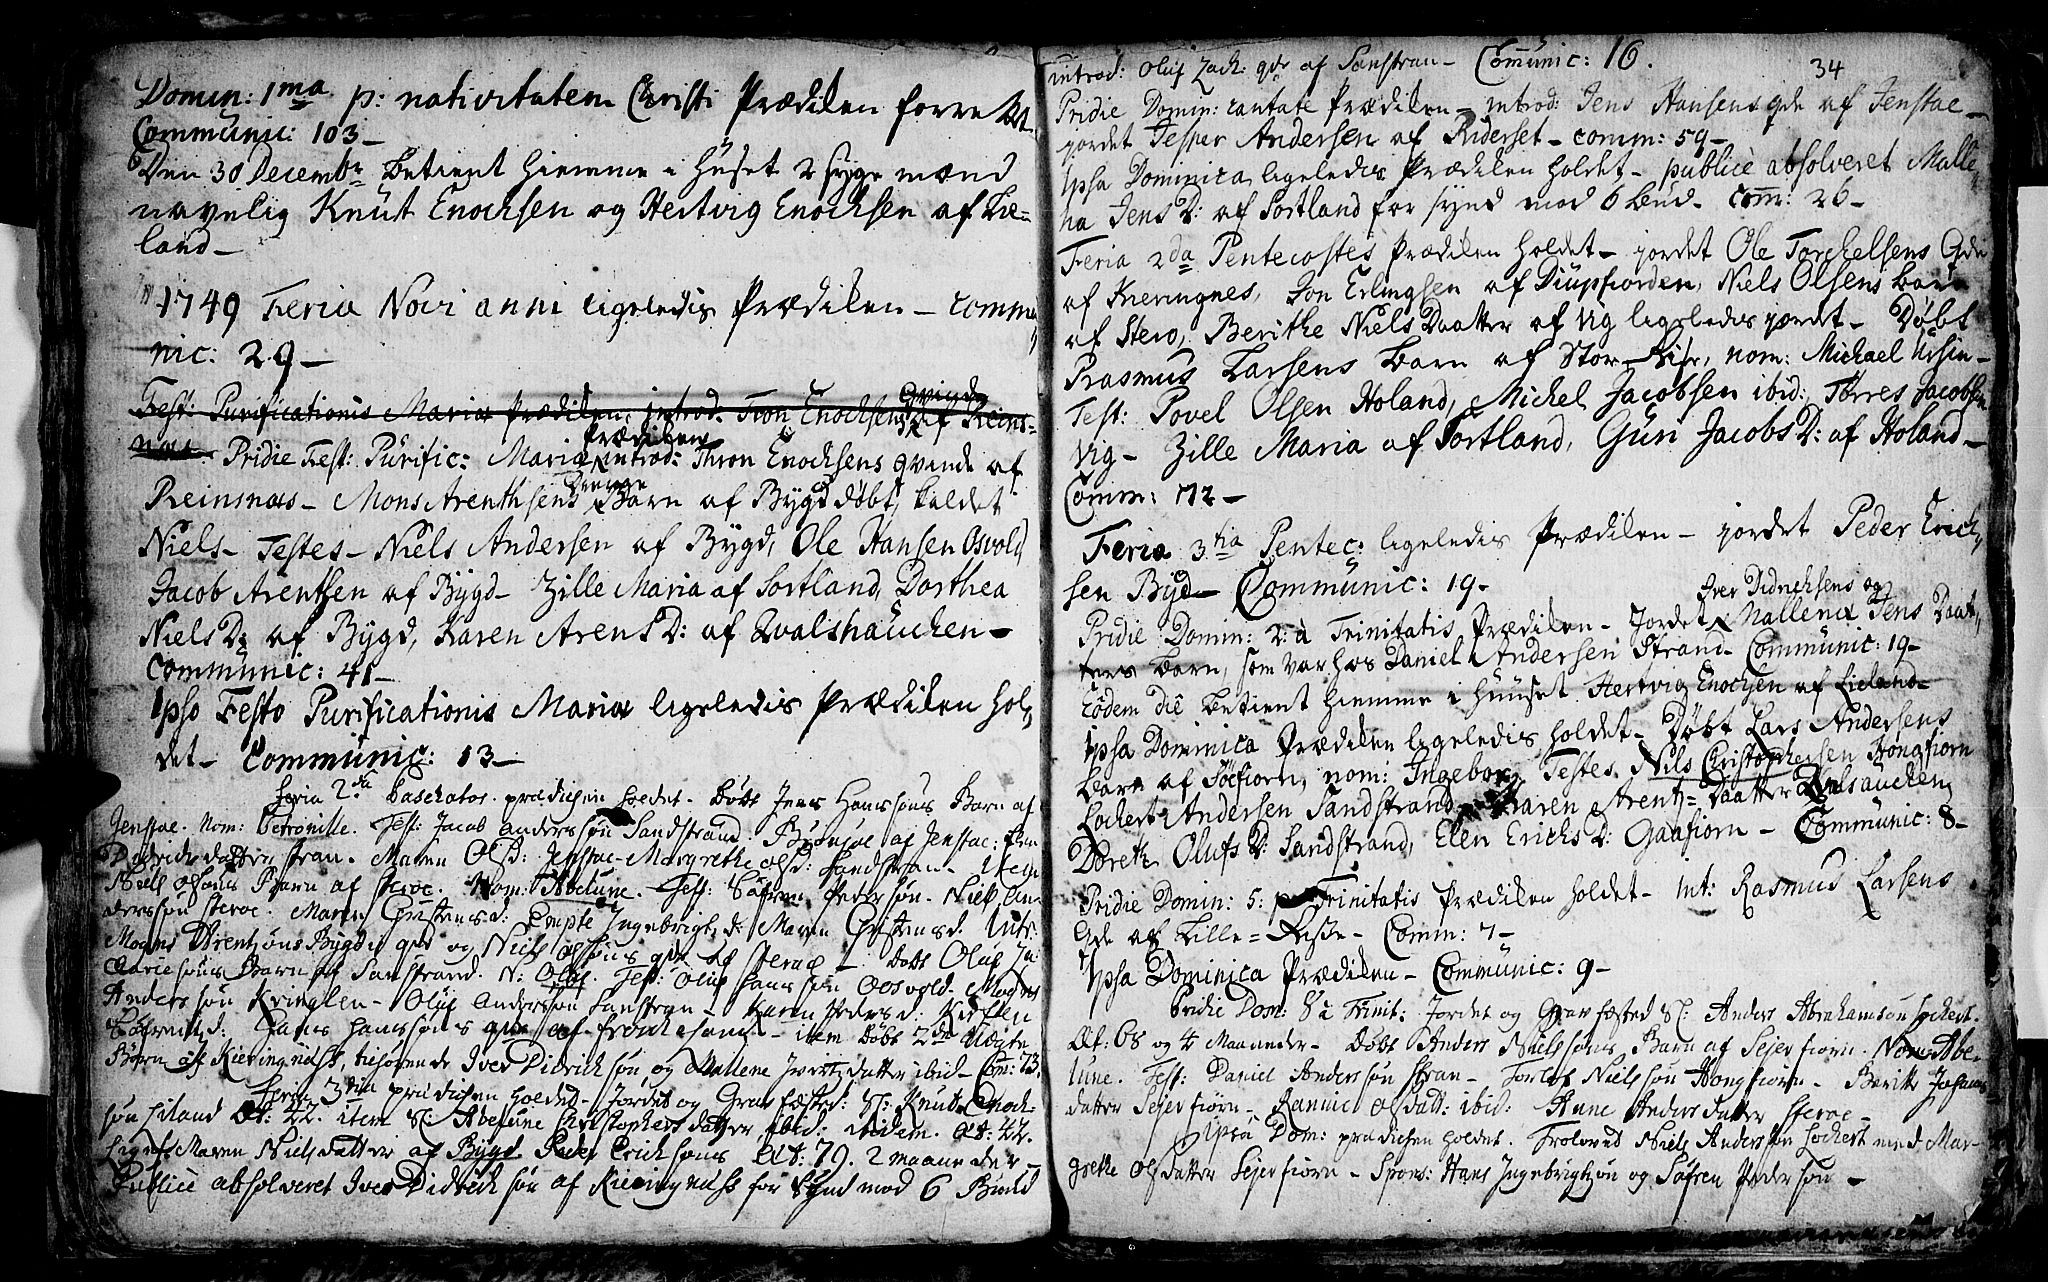 Domin: 1ma p: nativitatem Christi Prædiken forrettet
Communic: 103 –
Den 30 Decembr betient hiemme i Huset 2 syge mænd
navnlig Knut Enochsen og Hertvig Enochsen af Lie=
land –
1749 Feria Novi anni ligeledis Prædiken – commu
nic: 29 –
Fest: Purificationis Mariæ Prædiken, introd: Tron Enochsens Qvinde af Reins=
næs. Pridie Fest: Purific: Mariæ Prædiken introd: Thron Enochsens qvinde af
Reinsnæs – Mons Arenthsens Barn af Bygd døbt, kaldet
Niels – Testes – Niels Andersen af Bygd, Ole Hansen Osvold,
Jacob Arentsen af Bygd – Zille Maria af Sortland, Dorthea
Niels D: af Bygd, Karen Arens D: af Qvalshauchen –
Communic: 41 –
Ipso Festo Purificationis Mariæ ligeledis Prædiken hol
det – Communic: 13 –
Feria 2da Paschatos prædichen holdet – Døbt Jens Hanssøns Barn af
Jenstae. Nom: Petronille. Test: Jacob Anderssøn Sandstrand. af Jenstae:
Didrichsdatter Stran. Maren Olsd: Jenstae – Margrethe Olsd: Sandstran –
Niels Olsøns Barn af Steroe. Nom: Abelune. Test: Søfren Pedersøn. Niels An
derssøn Steroe. Maren Christensd: Ingebrigts d: Maren Christensd. Intr:
Mogens Arentsøns Bygde qde og Niels Olssøns qde af Steroe – Døbt Oluf Za
chariesøns Barn af Sanstrand. N: Olof. Test: Oluf Hanssøn Oosvold. Mogns
Anderssøn Kringlen – Oluf Anderssøn Sanstran – Karen Pedersd: Kirsten
Søfrensd: Hans Hanssøns qde af – item Døbt 2de Uægte
Børn af Kieringnæss, tilhørende Iver Didrichsøn og Mallene Jensdatter ibid – Com: 73.
Feria 3tia prædichen holdet – Jordet og Graf fæsted: Sl: Knut Enoch=
søn Leiland Æt: 42. item Sl: Abelune Christophersdatter ibid: ibidem. Æt: 42.
ligeså Maren Nielsdatter af Bygd Peder Erichsøns Æt: 79. 2 maaneder –
Publicè absolveret Iver Didrichsøn af Kieringnæss for Synd mod 6 Bund
34
introd: Oluf Zach: qde af Sanstran – Comunic: 16.
Pridie Domin: cantate Prædiken – introd: Jens Hansens qde af Jenstae –
jordet Jesper Andersen af Riderset – comm: 59 –
Ipsa Dominica ligeledis Prædiken holdet – publicè absolveret Malle=
na Jens D: af Sortland for synd mod 6 bud – com: 26 –
Feria 2da Pentecostes Prædiken holdet – jordet Ole Torchelsens Qde
af Kieringnes, Jon Erlingsen af Diupfiorden, Niels Olsens barn
af Stero, Berithe Niels Daatter af Vig ligeledis jordet – Døbt
Rasmus Larsens barn af Stor-Risø, nom: Michael Ursin –
Test: Povel Olsen Holand, Michel Jacobsen ibid:, Torres Jacobsen
Vig – Zille Maria af Sortland, Guri Jacobs D: af Holand –
Comm: 72 –
Feria 3tia Pentec: ligeledis Prædiken – jordet Peder Erich
sen Bygd – Communic: 19 –
Pridie Domin: 2: à Trinitatis Prædiken – Jordet Iver Didrichsens og Mallena Jens Daat
ters barn, som var hos Daniel Andersen Strand – Communic: 19 –
eodem die betient hiemme i huuset Hertvig Enochsen af Lieland –
Ipsa Dominica Prædiken ligeledis holdet – Døbt Lars Andersens
barn af Søefiorn, nom: Ingeborg. Testes. Nils Christophersen Hongfiorn
Lochert Andersen Sandstrand – Karen Arentz=Daatter Qvalsauchen,
Dorete Olufs D: Sandstrand, Elen Erichs D: Gaasfiorn – Communic: 8 –
Pridie Domin: 5: p Trinitatis Prædiken holdet – int: Rasmus Larsens
Qde af Lille=Risøe – Comm: 7 –
Ipsa Dominica Prædiken – Communic: 9 –
Pridie Dom: 8 à Trinit: Jordet og Graf fæsted Sl: Anders Abrahamsøn Lochert.
Æt. 68 og 4 Maaneder – Døbt Anders Nielssøns Barn af Sejerfiorn. Nom: Abe=
lune. Test: Daniel Anderssøn Stran – Torlof Nielssøn Hongfiorn – Berithe Johans
datter Sejerfiørn – Rannic Olsdatt: ibid: Anne Andersdatter Steroe –
Ipsa Dom: prædichen holdet. Troloved Niels Anderssøn Lochert med Mar=
grethe Olsdatter Sejerfiorn – Spons: Hans Ingebrigtsøn og Søfren Pedersøn –